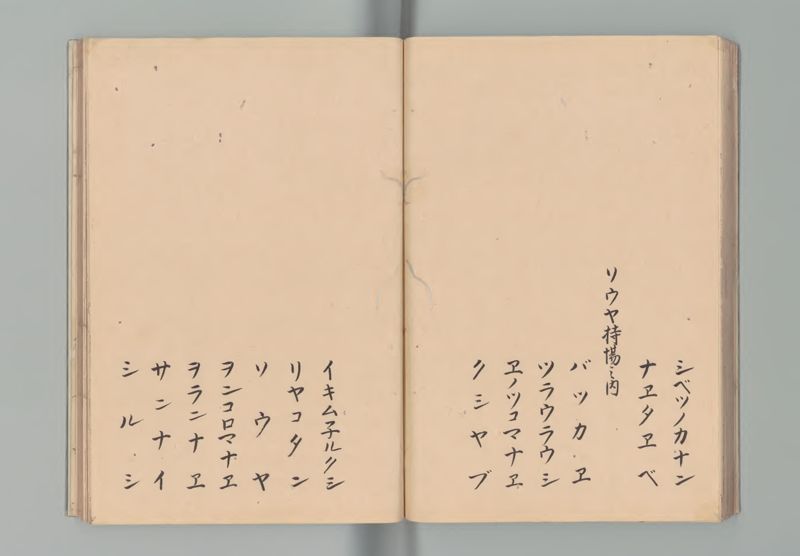 シベツノカナン
ナヱタヱベ
ソウヤ持場之内
バツカヱ
ツラウラウシ
ヱノツコマナヱ
クシヤブ
イキム子ルクシ
リヤコタン
ソウヤ
ヲンコロマナヱ
ヲランナヱ
サンナイ
シルシ